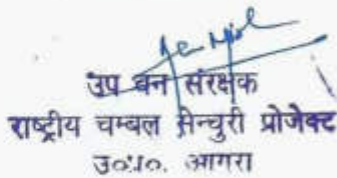 उप वन संरक्षक
राष्ट्रीय चम्बल सेन्चुरी प्रोजेक्ट
उ०प्र०. आगरा